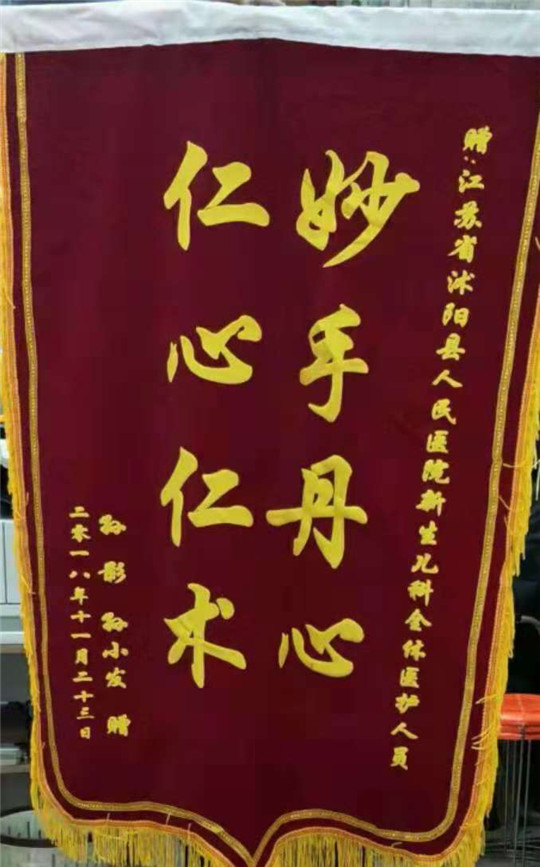 赠:江苏省沭阳县人民医院新生儿科全体医护人员
妙手丹心
仁心仁术
孙影 孙小发 赠
二零一八年十一月二十三日